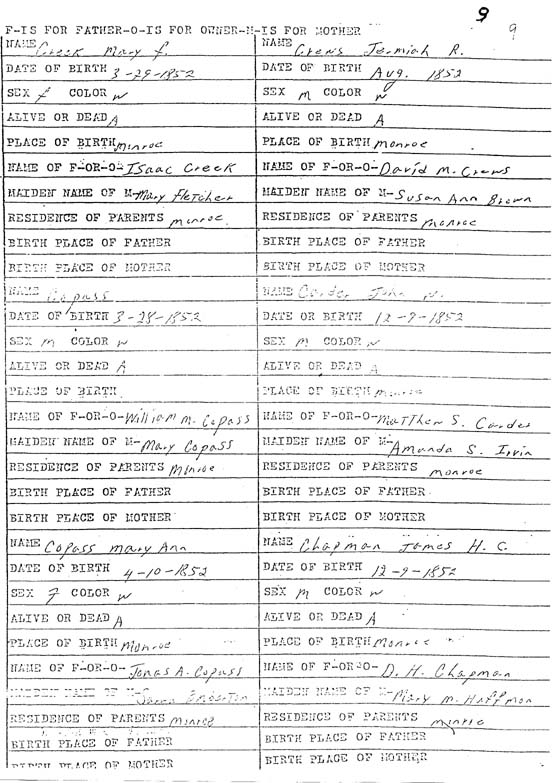 9
9
F-IS FOR FATHER-O-IS FOR OWNER-M-IS FOR MOTHER
NAME Creek Mary f.
DATE OF BIRTH 3-29-1852
SEX f COLOR w
ALIVE OR DEAD A
PLACE OF BIRTH monroe
NAME OF F-OR-O- Isaac Creek
MAIDEN NAME OF M- Mary Fletcher
RESIDENCE OF PARENTS monroe
BIRTH PLACE OF FATHER
BIRTH PLACE OF MOTHER
NAME Copass
DATE OF BIRTH 3-28-1852
SEX m COLOR w
ALIVE OR DEAD A
PLACE OF BIRTH
NAME OF F-OR-O- William M. Copass
MAIDEN NAME OF M- Mary Copass
RESIDENCE OF PARENTS Monroe
BIRTH PLACE OF FATHER
BIRTH PLACE OF MOTHER
NAME Copass Mary Ann
DATE OF BIRTH 4-10-1852
SEX f COLOR w
ALIVE OR DEAD A
PLACE OF BIRTH Monroe
NAME OF F-OR-O- Jonas A. Copass
MAIDEN NAME OF M-
RESIDENCE OF PARENTS monroe
BIRTH PLACE OF FATHER
BIRTH PLACE OF MOTHER
NAME Crews Jermiah R.
DATE OF BIRTH Aug. 1852
SEX m COLOR w
ALIVE OR DEAD A
PLACE OF BIRTH monroe
NAME OF F-OR-O- David M. Crews
MAIDEN NAME OF M- Susan Ann Brown
RESIDENCE OF PARENTS monroe
BIRTH PLACE OF FATHER
BIRTH PLACE OF MOTHER
NAME Carder John W.
DATE OR BIRTH 12-9-1852
SEX m COLOR w
ALIVE OF DEAD A
PLACE OF BIRTH monroe
NAME OF F-OR-O- Matthew S. Carder
MAIDEN NAME OF M- Amanda S. Irvin
RESIDENCE OF PARENTS monroe
BIRTH PLACE OF FATHER
BIRTH PLACE OF MOTHER
NAME Chapman James H. C.
DATE OF BIRTH 12-9-1852
SEX m COLOR w
ALIVE OR DEAD A
PLACE OF BIRTH Monroe
NAME OF F-OR-O- D. H. Chapman
MAIDEN NAME OF M- Mary M. Huffman
RESIDENCE OF PARENTS monroe
BIRTH PLACE OF FATHER
BIRTH PLACE OF MOTHER